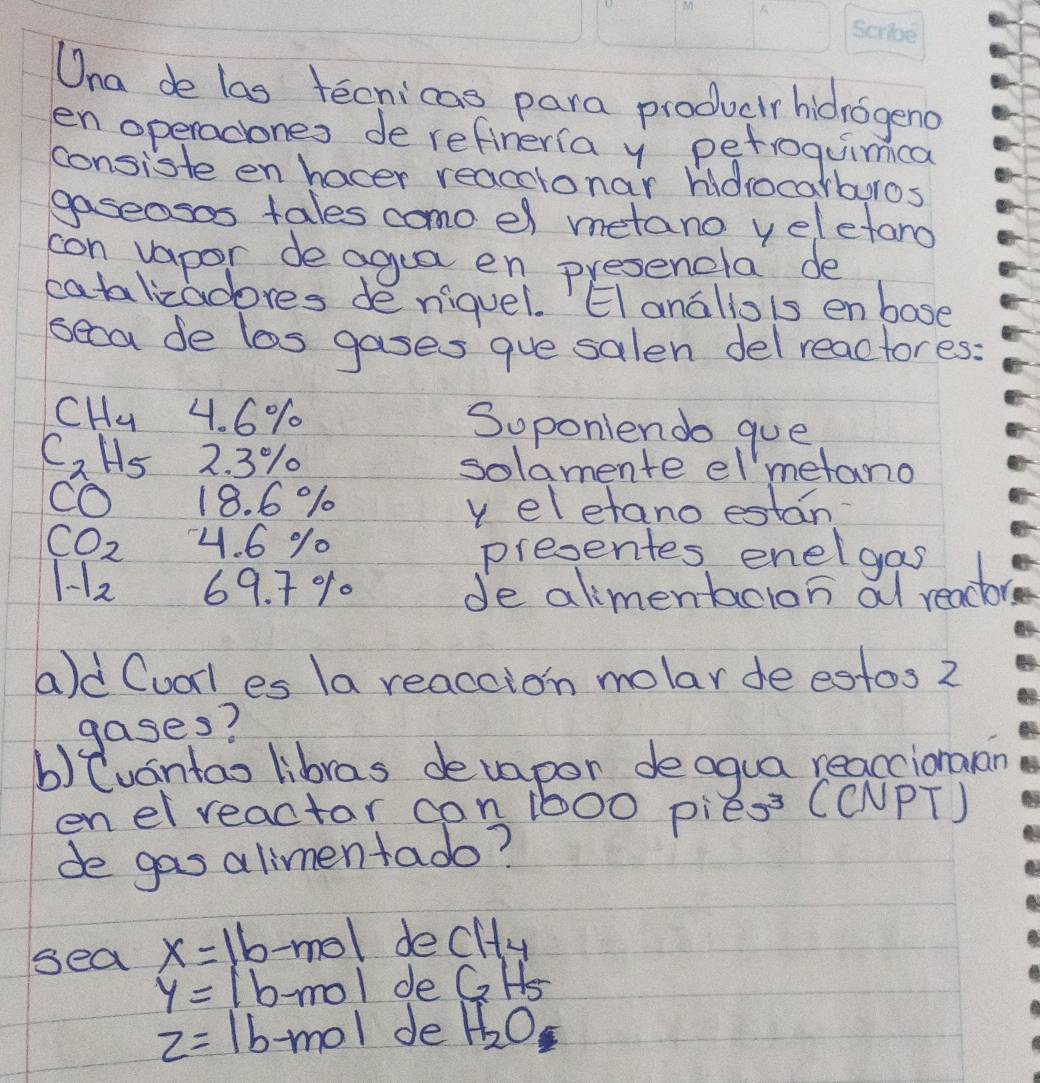 Scribe
Una de las técnicas para producir hidrógeno
en operaciones de refinería y petroquímica
consiste en hacer reaccionar hidrocarburos
gaseosos tales como el metano y el etano
con vapor de agua en presencia de
catalizadores de niquel. El análisis en base
seca de los gases que salen del reactores:
CH4 4.6%
C2H5 2.3%
CO 18.6%
CO2 4.6%
H2 69.7%
Suponiendo que
solamente el metano
y el etano están
presentes en el gas
de alimentación al reactor.
a) ¿Cual es la reacción molar de estos 2
gases?
b) Cuántas libras de vapor de agua reaccionarán
en el reactor con 1000 pies³ (CNPT)
de gas alimentado?
sea x = lb-mol de CH4
y = lb-mol de C2H5
z = lb-mol de H2O.